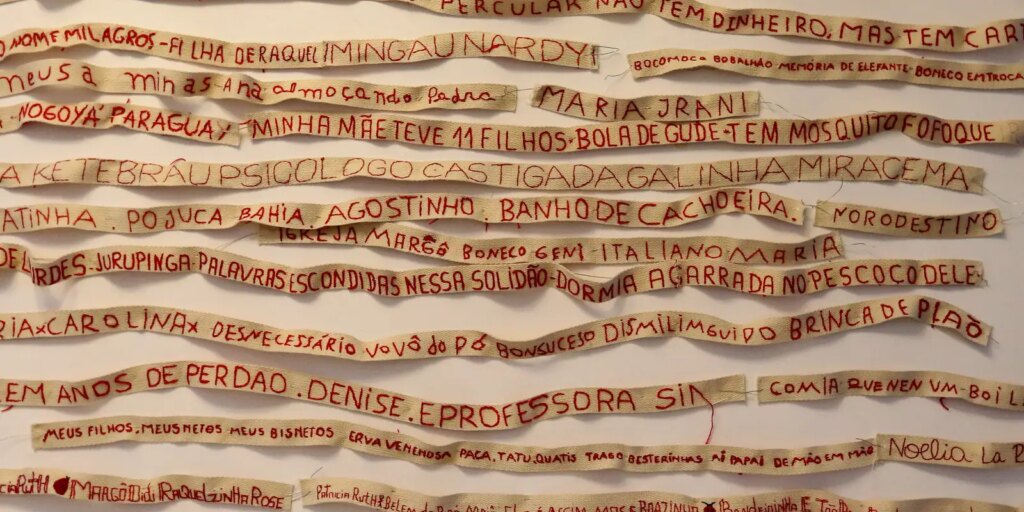 PERCULAR NÃO TEM DINHEIRO, MAS TEM
O NOME MILAGROS-FILHA DE RAQUEL MINGAU NARDY
BOCOMOCO BOBALHÃO MEMÓRIA DE ELEFANTE-BONECO EM TROCA
meus a minas-Ana almoçando Pedra
MARIA JRANI
NOGOYÁ PARAGUAY
MINHA MÃE TEVE 11 FILHOS-BOLA DE GUDE-TEM MOSQUITO FOFOQUE
A KETEBRÂU PSICÓLOGO CASTIGADA GALINHA MIRACEMA
ATINHA. POJUCA BAHIA. AGOSTINHO. BANHO DE CACHOEIRA.
NORODESTINO
IGREJA MARÉ BONECO GENI ITALIANO MARIA
DE LURDES-JURUPINGA-PALAVRAS ESCONDIDAS NESSA SOLIDÃO-DORMIA AGARRADA NO PESCOÇO DELE-
RIA×CAROLINA× DESNECESSÁRIO VOVÔ do PÓ BONSUCESO DISMILIMGUIDO BRINCA DE PIAÕ
EM ANOS DE PERDAO. DENISE. E PROFESSORA SIM
COMIA QUE NEN UM-BOI
MEUS FILHOS. MEUS NETOS MEUS BISNETOS ERVA VENENOSA PACA, TATU, QUATIS TRAGO BESTERINHAS AI PAPAI DE MÃO EM MÃO
Noelia La
RUTH MARGÔ Didi RAQUELZINHA ROSE
PATRICIA RUTH BELEM